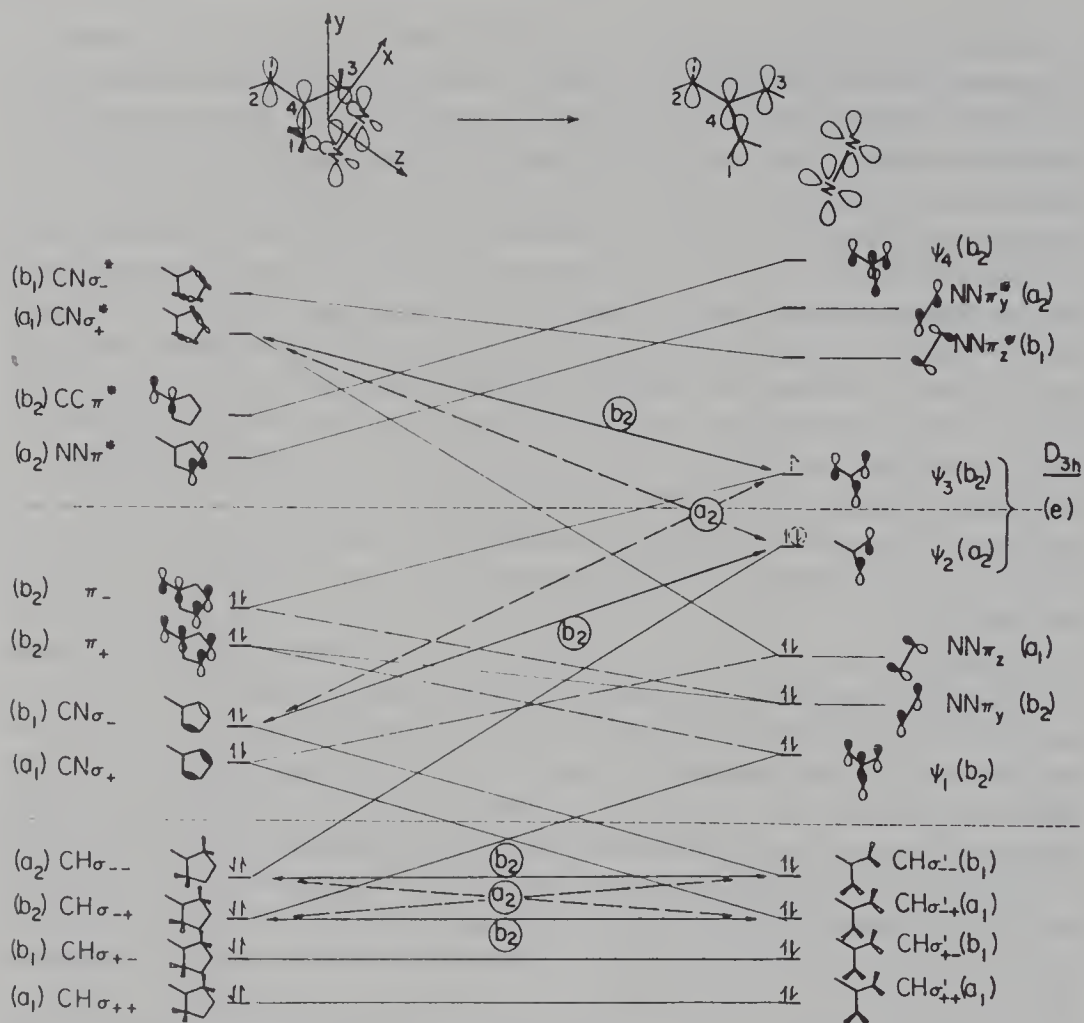 y
x
z
1
2
3
4
1
N
N
1
2
3
4
1
N
N
(b₁) CNσ₋*
(a₁) CNσ₊*
(b₂) CC π*
(a₂) NNπ*
(b₂) π₋
(b₂) π₊
(b₁) CNσ₋
(a₁) CNσ₊
(a₂) CHσ₋₋
(b₂) CHσ₋₊
(b₁) CHσ₊₋
(a₁) CHσ₊₊
b₂
a₂
b₂
b₂
a₂
b₂
ψ₄(b₂)
NNπy*(a₂)
NNπz*(b₁)
ψ₃(b₂)
D₃h
(e)
ψ₂(a₂)
NNπz (a₁)
NNπy (b₂)
ψ₁(b₂)
CHσ'₋₋(b₁)
CHσ'₋₊(a₁)
CHσ'₊₋(b₁)
CHσ'₊₊(a₁)